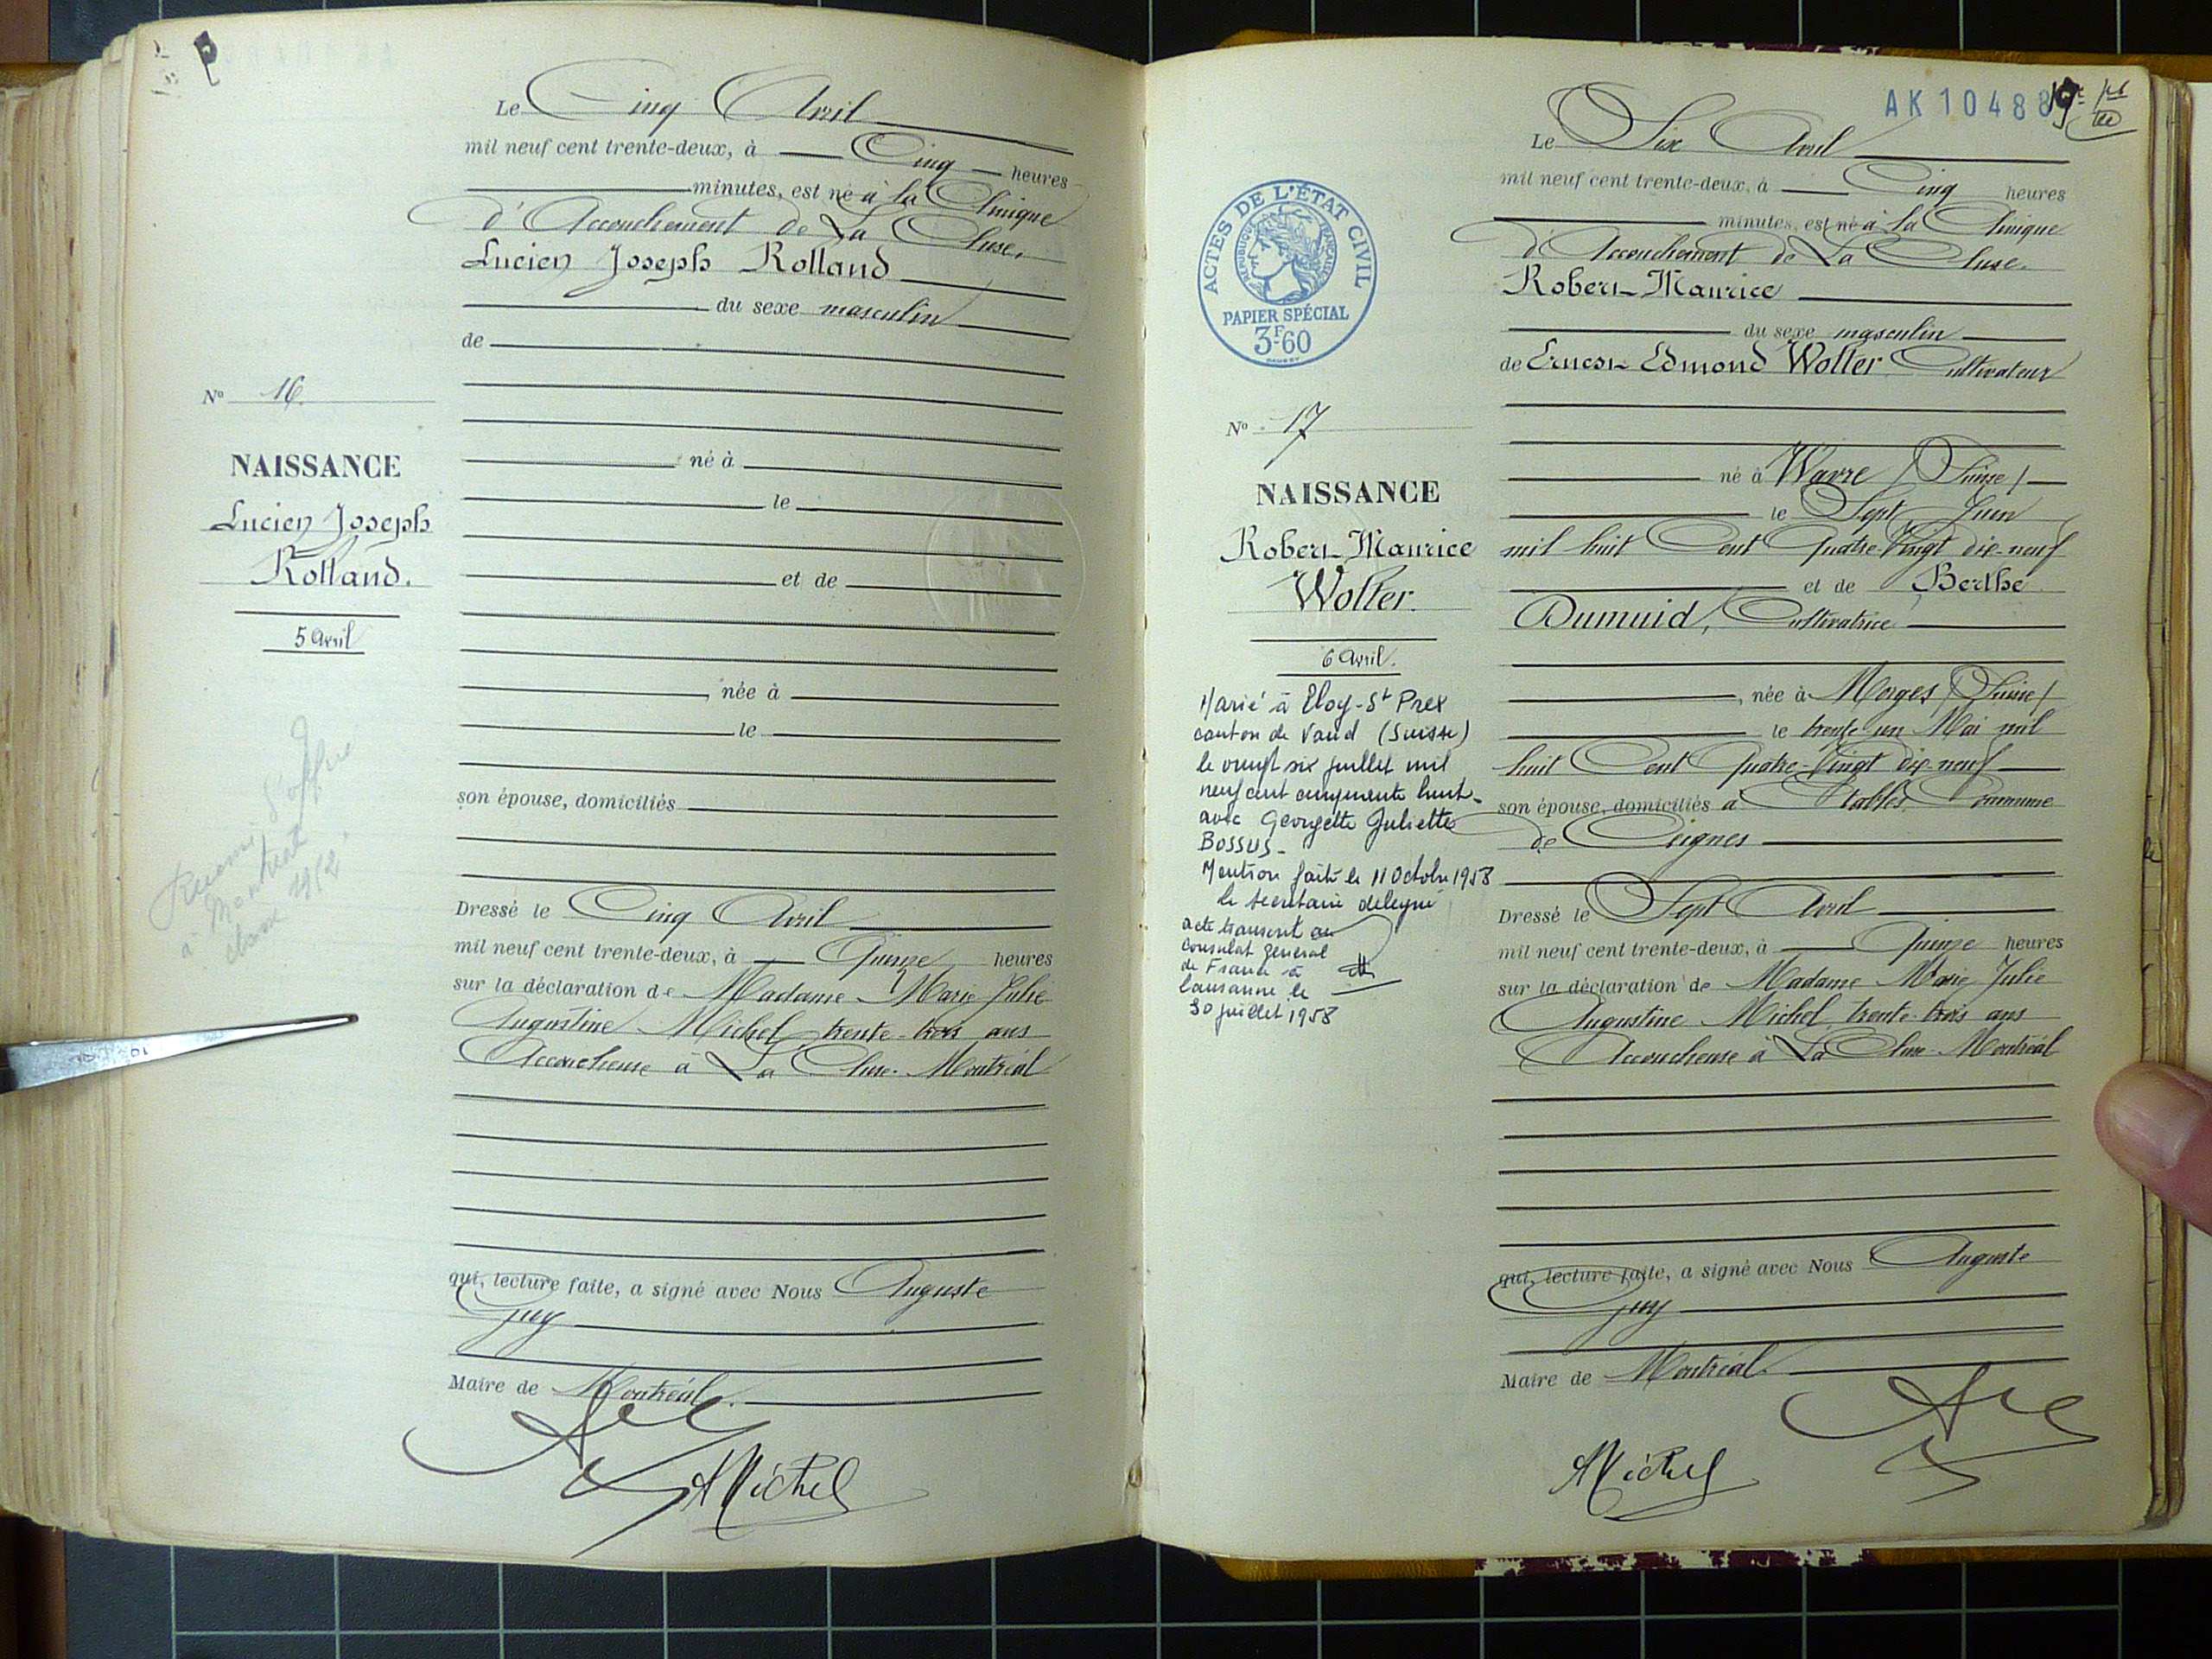 Le Cinq Avril
mil neuf cent trente-deux, à Cinq heures
minutes, est né à la Clinique
d'Accouchement de La Cluse,
Lucien Joseph Rolland
du sexe masculin
de
né à
le
et de
née à
le
son épouse, domiciliés
Dressé le Cinq Avril
mil neuf cent trente-deux, à Quinze heures
sur la déclaration de Madame Marie Julie
Augustine Michel, trente-trois ans
Accoucheuse à La Cluse-Montréal
qui, lecture faite, a signé avec Nous Auguste
Guy
Maire de Montréal.
AMichel
No 16.
NAISSANCE
Lucien Joseph
Rolland.
5 Avril
à Montréal
AK 1048
ACTES DE L'ÉTAT CIVIL
RÉPUBLIQUE FRANÇAISE
PAPIER SPÉCIAL
3F60
No 17
NAISSANCE
Robert Maurice
Wolter.
6 Avril.
Marié à Eloy-St Prex
canton de Vaud (Suisse)
le vingt six juillet mil
neuf cent cinquante huit
avec Georgette Juliette
Bossus-
Mention faite le 11 Octobre 1958
le secrétaire délégué
acte transcrit au
consulat général
de France à
Lausanne le
30 juillet 1958
Le Six Avril
mil neuf cent trente-deux, à Cinq heures
minutes, est né à la Clinique
d'Accouchement de La Cluse.
Robert Maurice
du sexe masculin
de Ernest Edmond Wolter Cultivateur
né à Wavre (Suisse)
le Sept Juin
mil huit Cent Quatre-Vingt dix-neuf
et de Berthe
Dumuid, Cultivatrice
, née à Morges (Suisse)
le trente un Mai mil
huit Cent Quatre-Vingt dix neuf
son épouse, domiciliés à Etables Commune
de Ceignes
Dressé le Sept Avril
mil neuf cent trente-deux, à Quinze heures
sur la déclaration de Madame Marie Julie
Augustine Michel, trente-trois ans
Accoucheuse à La Cluse-Montréal
qui, lecture faite, a signé avec Nous Auguste
Guy
Maire de Montréal.
AMichel